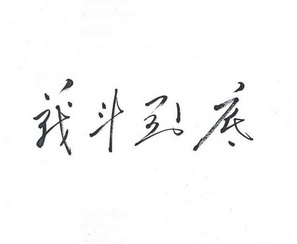 战斗到底